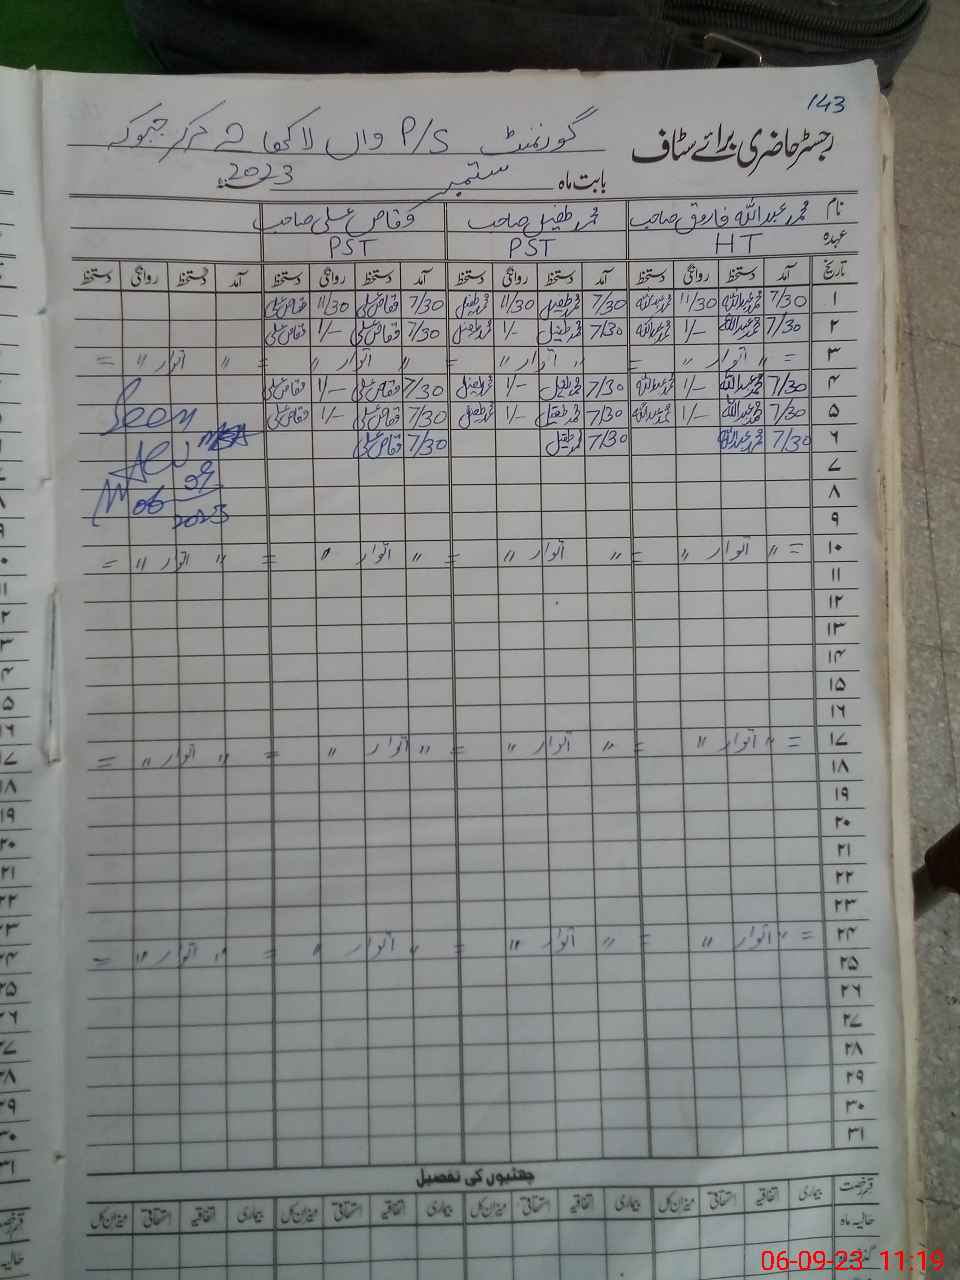 143
رجسٹر حاضری برائے سٹاف گورنمنٹ P/S واں
بابت ماہ ستمبر 2023ء
نام محمد عبداللہ فاروق صاحب محمد طفیل صاحب وقاص علی صاحب
عہدہ HT PST PST
تاریخ آمد دستخط روانگی دستخط آمد دستخط روانگی دستخط آمد دستخط روانگی دستخط آمد دستخط روانگی دستخط
۱ 7/30 محمد عبداللہ 11/30 محمد عبداللہ 7/30 محمد طفیل 11/30 محمد طفیل 7/30 وقاص علی 11/30 وقاص علی
۲ 7/30 محمد عبداللہ 1/- محمد عبداللہ 7/30 محمد طفیل 1/- محمد طفیل 7/30 وقاص علی 1/- وقاص علی
۳ = " اتوار " = " اتوار " = " اتوار " = " اتوار " =
۴ 7/30 محمد عبداللہ 1/- محمد عبداللہ 7/30 محمد طفیل 1/- محمد طفیل 7/30 وقاص علی 1/- وقاص علی
۵ 7/30 محمد عبداللہ 1/- محمد عبداللہ 7/30 محمد طفیل 1/- محمد طفیل 7/30 وقاص علی 1/- وقاص علی
۶ 7/30 محمد عبداللہ 7/30 محمد طفیل 7/30 وقاص علی
Seen
AEO
06 09
2023
۷
۸
۹
۱۰ = " اتوار " = " اتوار " = " اتوار " = " اتوار " =
۱۱
۱۲
۱۳
۱۴
۱۵
۱۶
۱۷ = " اتوار " = " اتوار " = " اتوار " = " اتوار " =
۱۸
۱۹
۲۰
۲۱
۲۲
۲۳
۲۴ = " اتوار " = " اتوار " = " اتوار " = " اتوار " =
۲۵
۲۶
۲۷
۲۸
۲۹
۳۰
۳۱
چھٹیوں کی تفصیل
قسم رخصت بیماری اتفاقیہ استحقاقی میزان کل بیماری اتفاقیہ استحقاقی میزان کل بیماری اتفاقیہ استحقاقی میزان کل
حالیہ ماہ
06-09-23 11:19